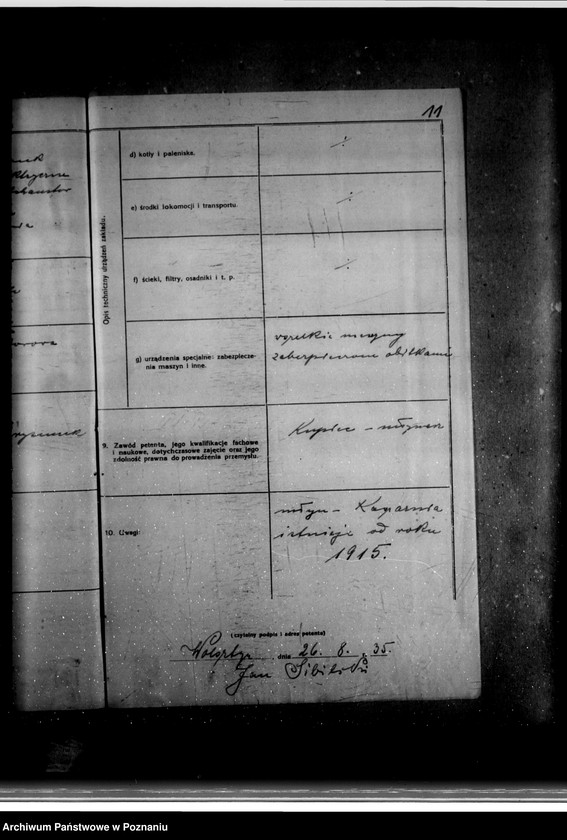 11
Opis techniczny urządzeń zakładu.
d) kotły i paleniska.
÷
e) środki lokomocji i transportu.
÷
f) ścieki, filtry, osadniki i t. p.
÷
g) urządzenia specjalne: zabezpiecze-
nia maszyn i inne.
wszelkie maszyny
zabezpieczone obitkami
9. Zawód petenta, jego kwalifikacje fachowe
i naukowe, dotychczasowe zajęcie oraz jego
zdolność prawna do prowadzenia przemysłu.
Kupiec – młynarz
10. Uwagi:
młyn – Kaszarnia
istnieje od roku
1915.
(czytelny podpis i adres petenta)
Wolsztyn, dnia 26. 8. 35.
Jan
Archiwum Państwowe w Poznaniu